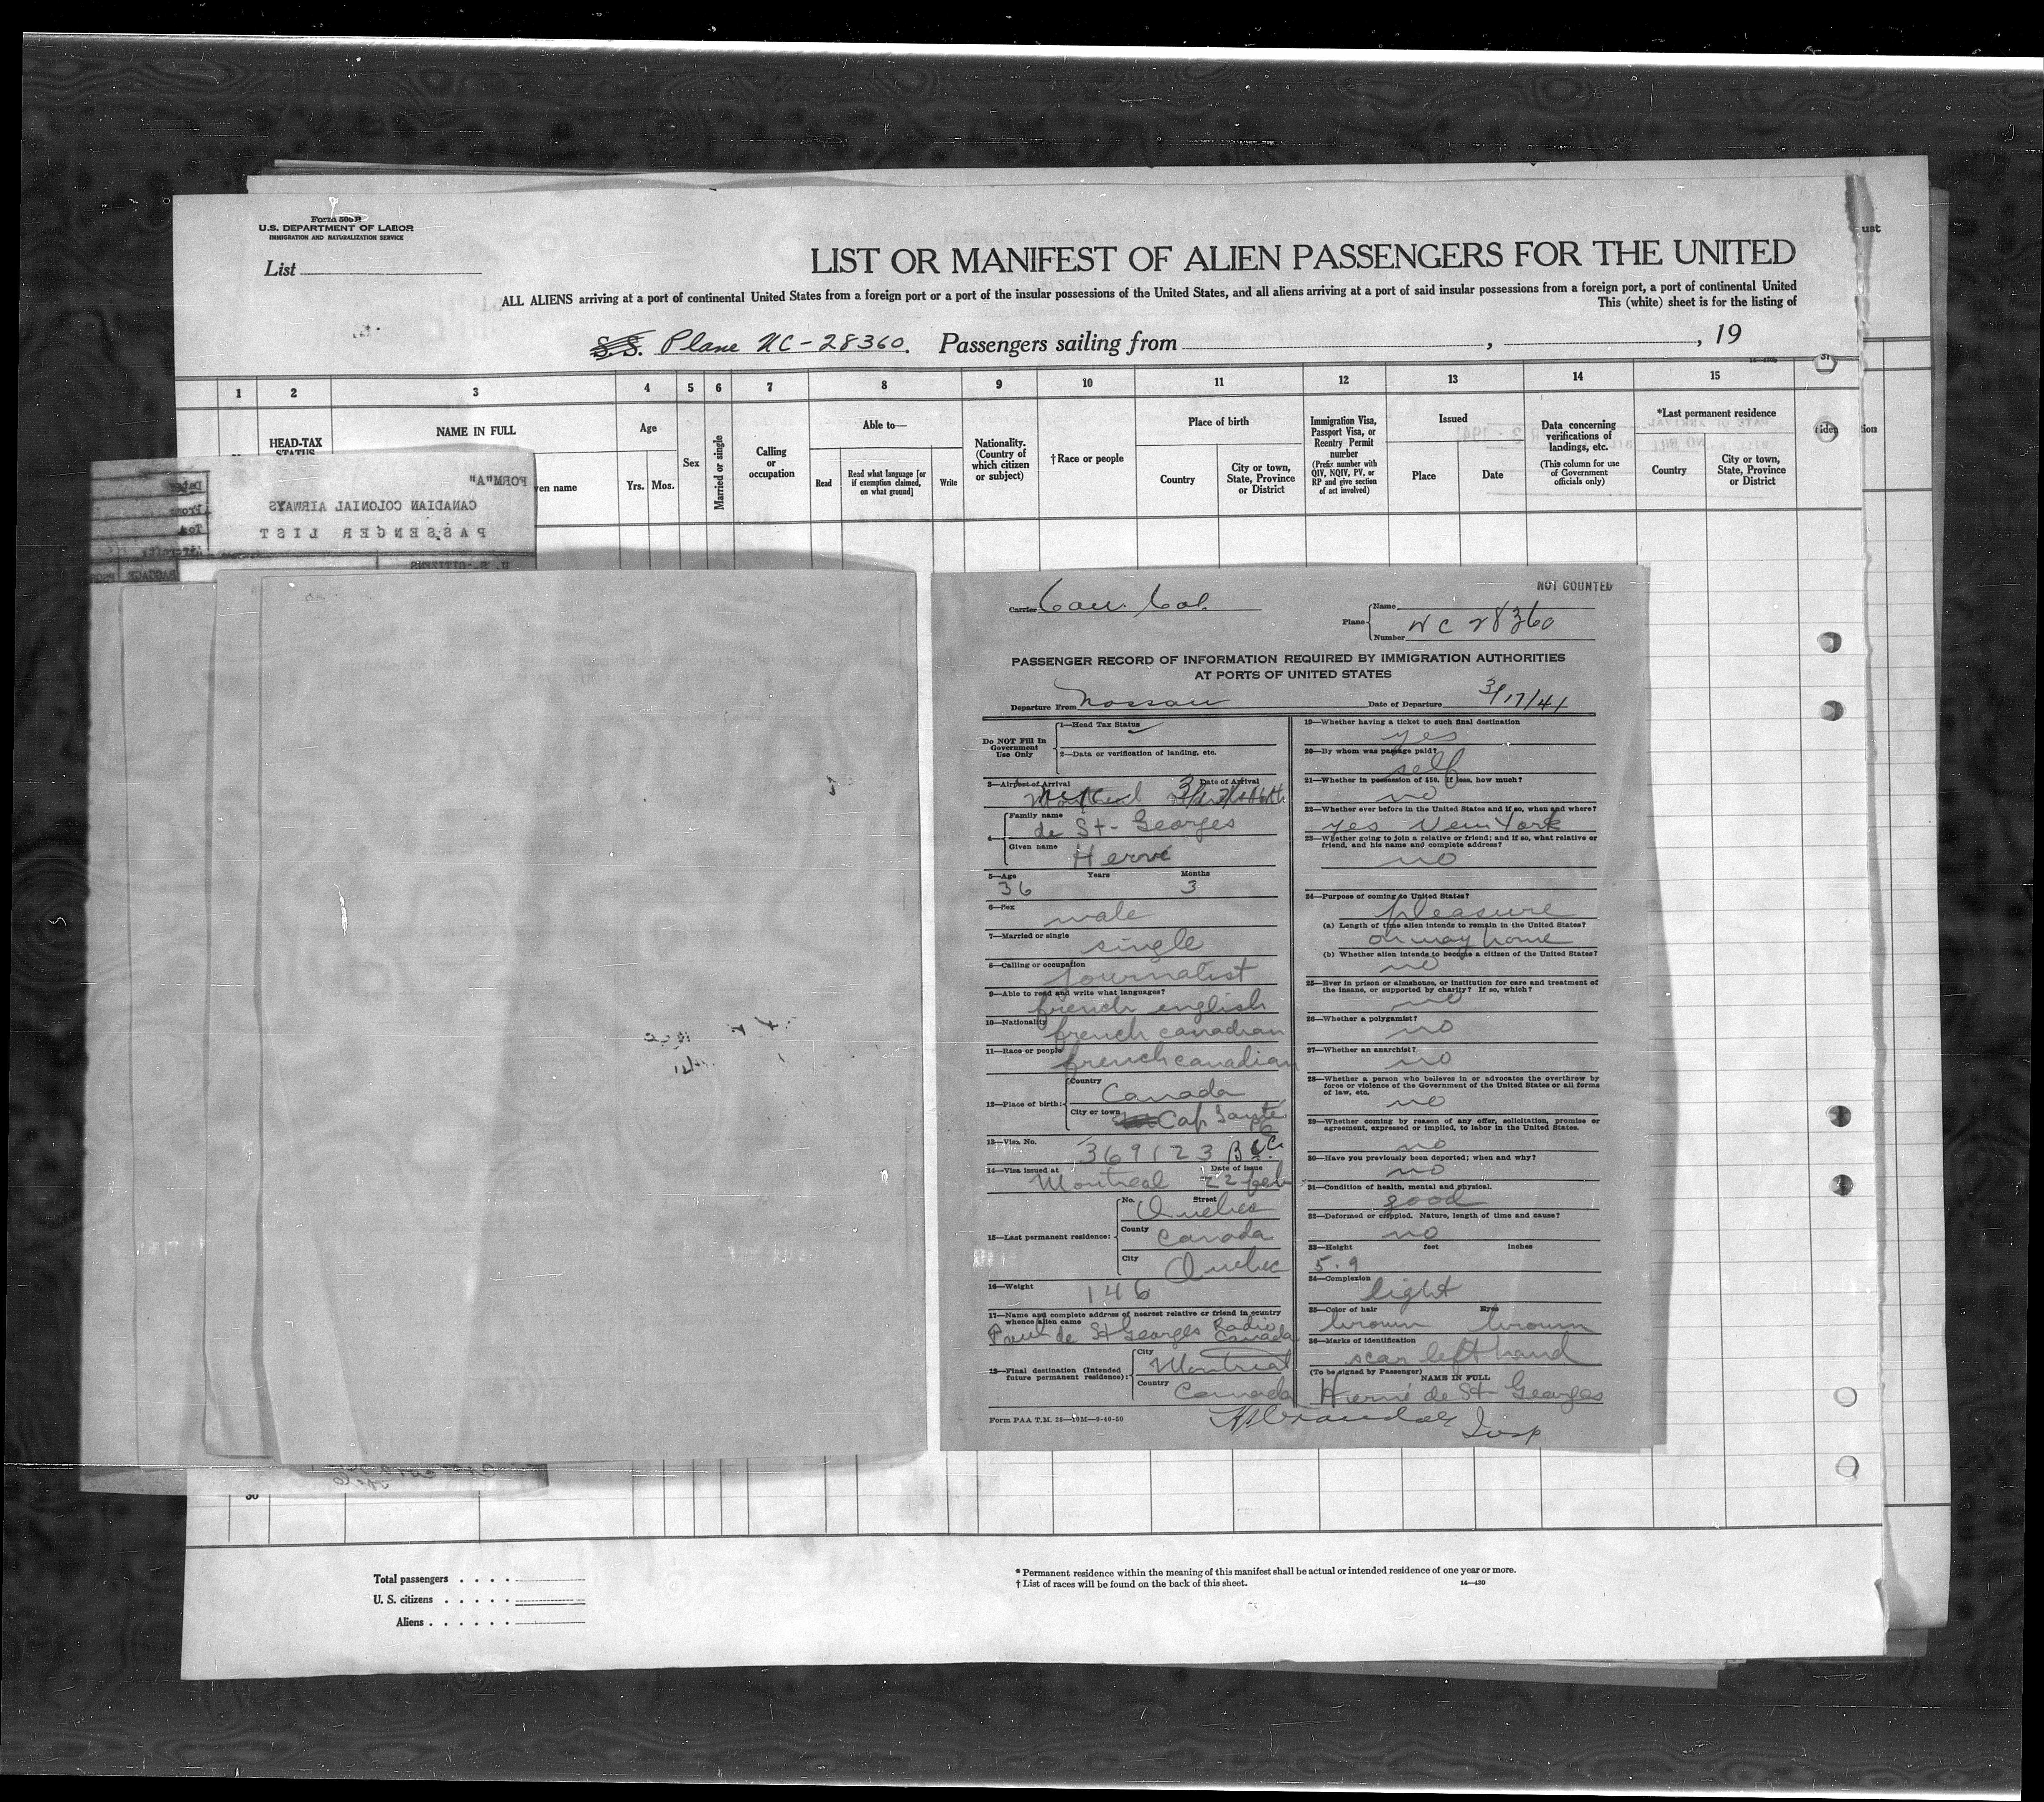 Form 500 B
U.S. DEPARTMENT OF LABOR
IMMIGRATION AND NATURALIZATION SERVICE
List
LIST OR MANIFEST OF ALIEN PASSENGERS FOR THE UNITED
ALL ALIENS arriving at a port of continental United States from a foreign port or a port of the insular possessions of the United States, and all aliens arriving at a port of said insular possessions from a foreign port, a port of continental United
This (white) sheet is for the listing of
S.S. Plane NC-28360. Passengers sailing from , , 19
1 2 3 4 5 6 7 8 9 10 11 12 13 14 15
HEAD-TAX STATUS
NAME IN FULL
ven name
Age
Yrs. Mos.
Sex
Married or single
Calling or occupation
Able to—
Read
Read what language [or if exemption claimed, on what ground]
Write
Nationality. (Country of which citizen or subject)
†Race or people
Place of birth
Country
City or town, State, Province or District
Immigration Visa, Passport Visa, or Reentry Permit number
(Prefix number with QIV, NQIV, PV, or RP and give section of act involved)
Issued
Place
Date
Data concerning verifications of landings, etc.
(This column for use of Government officials only)
*Last permanent residence
Country
City or town, State, Province or District
FORM "A"
CANADIAN COLONIAL AIRWAYS
PASSENGER LIST
U. S. CITIZENS
BAGGAGE
NOT COUNTED
Carrier Can. Col.
Plane Name
Number NC 28360
PASSENGER RECORD OF INFORMATION REQUIRED BY IMMIGRATION AUTHORITIES
AT PORTS OF UNITED STATES
Departure From Nassau Date of Departure 3/17/41
Do NOT Fill In Government Use Only
1—Head Tax Status
2—Data or verification of landing, etc.
3—Airport of Arrival Date of Arrival
4— Family name de St-Georges
Given name Hervé
5—Age 36 Years Months 3
6—Sex male
7—Married or single single
8—Calling or occupation journalist
9—Able to read and write what languages? french english
10—Nationality french canadian
11—Race or people french canadian
12—Place of birth: Country Canada
City or town Cap Santé
13—Visa No. 369123
14—Visa issued at Montreal Date of issue 22 feb
15—Last permanent residence: No. Street Quebec
County Canada
City Quebec
16—Weight 146
17—Name and complete address of nearest relative or friend in country whence alien came
Paul de St Georges Radio Canada
18—Final destination (Intended future permanent residence): City Montreal
Country Canada
Form PAA T.M. 28—10M—9-40-50
19—Whether having a ticket to such final destination
yes
20—By whom was passage paid?
self
21—Whether in possession of $50. If less, how much?
no
22—Whether ever before in the United States and if so, when and where?
yes New York
23—Whether going to join a relative or friend; and if so, what relative or friend, and his name and complete address?
no
24—Purpose of coming to United States?
pleasure
(a) Length of time alien intends to remain in the United States?
on way home
(b) Whether alien intends to become a citizen of the United States?
no
25—Ever in prison or almshouse, or institution for care and treatment of the insane, or supported by charity? If so, which?
no
26—Whether a polygamist?
no
27—Whether an anarchist?
no
28—Whether a person who believes in or advocates the overthrow by force or violence of the Government of the United States or all forms of law, etc.
no
29—Whether coming by reason of any offer, solicitation, promise or agreement, expressed or implied, to labor in the United States.
no
30—Have you previously been deported; when and why?
no
31—Condition of health, mental and physical.
good
32—Deformed or crippled. Nature, length of time and cause?
no
33—Height feet inches
5.9
34—Complexion
light
35—Color of hair Eyes
brown brown
36—Marks of identification
scar left hand
(To be signed by Passenger) NAME IN FULL
Hervé de St-Georges
Insp
Total passengers . . . .
U. S. citizens . . . . .
Aliens . . . . . .
* Permanent residence within the meaning of this manifest shall be actual or intended residence of one year or more.
† List of races will be found on the back of this sheet.
14—430